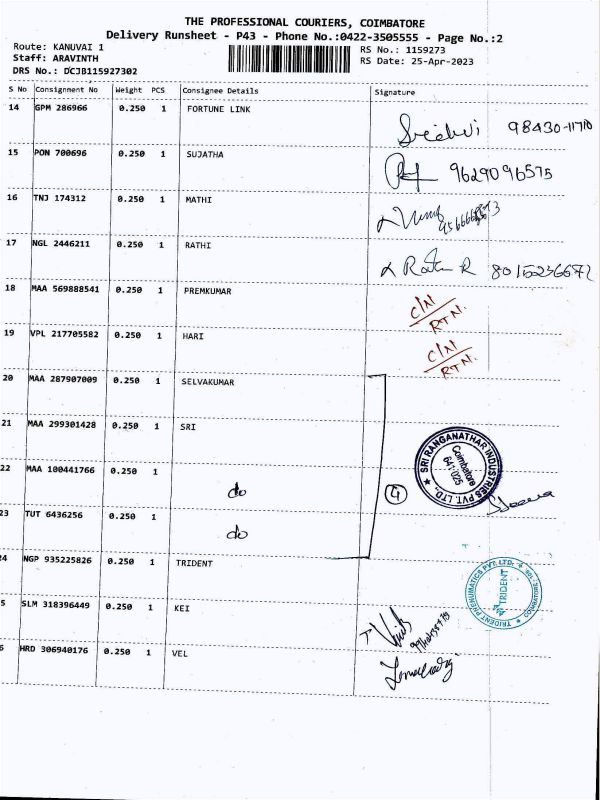 THE PROFESSIONAL COURIERS, COIMBATORE
Delivery Runsheet - P43 - Phone No.:0422-3505555 - Page No.:2
Route: KANUVAI 1
Staff: ARAVINTH
DRS No.: DCJB115927302
RS No.: 1159273
RS Date: 25-Apr-2023
S No Consignment No Weight PCS Consignee Details Signature
14 GPM 286966 0.250 1 FORTUNE LINK
98430-11710
15 PON 700696 0.250 1 SUJATHA
9629096575
16 TNJ 174312 0.250 1 MATHI
17 NGL 2446211 0.250 1 RATHI
R 8015236672
18 MAA 569888541 0.250 1 PREMKUMAR
C/N/
RTN.
19 VPL 217705582 0.250 1 HARI
C/N/
RTN.
20 MAA 287907009 0.250 1 SELVAKUMAR
21 MAA 299301428 0.250 1 SRI
SRI RANGANATHAR INDUSTRIES PVT. LTD.
Coimbatore
641 025
22 MAA 100441766 0.250 1 do
4
23 TUT 6436256 0.250 1 do
24 NGP 935225826 0.250 1 TRIDENT
TRIDENT PNEUMATICS PVT. LTD.
TRIDENT
5 SLM 318396449 0.250 1 KEI
6 HRD 306940176 0.250 1 VEL